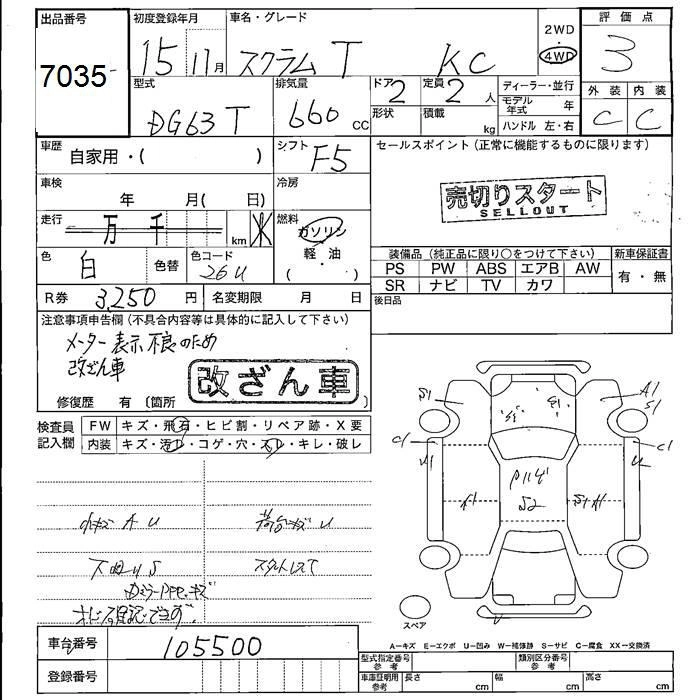 出品番号
7035
初度登録年月
15 11月
車名・グレード
スクラム T KC
2WD
4WD
評価点
3
外装 内装
C C
型式
DG63T
排気量
660 cc
ドア 2
形状
定員 2 人
積載 kg
ディーラー・並行
モデル年式 年
ハンドル 左・右
車歴
自家用・( )
シフト
F5
セールスポイント(正常に機能するものに限ります)
売切りスタート
SELLOUT
車検
年 月( 日)
冷房
走行
万 千 km
燃料
ガソリン
軽・油
( )
色
白
色替
色コード
26U
装備品(純正品に限り○をつけて下さい)
新車保証書
PS PW ABS エアB AW
SR ナビ TV カワ
有・無
R券 3,250 円
名変期限 月 日
後日品
注意事項申告欄(不具合内容等は具体的に記入して下さい)
メーター表示不良のため
改ざん車
改ざん車
修復歴 有 (箇所 )
検査員記入欄
FW キズ・飛石・ヒビ割・リペア跡・X要
内装 キズ・汚レ・コゲ・穴・スレ・キレ・破レ
小キズ A U
荷台キズ U
下廻りS
スペア
車台番号
105500
登録番号
A-キズ E-エクボ U-凹み W-補修跡 S-サビ C-腐食 XX-交換済
型式指定番号 参考
類別区分番号 参考
車庫証明用 参考
長さ cm
幅 cm
高さ cm